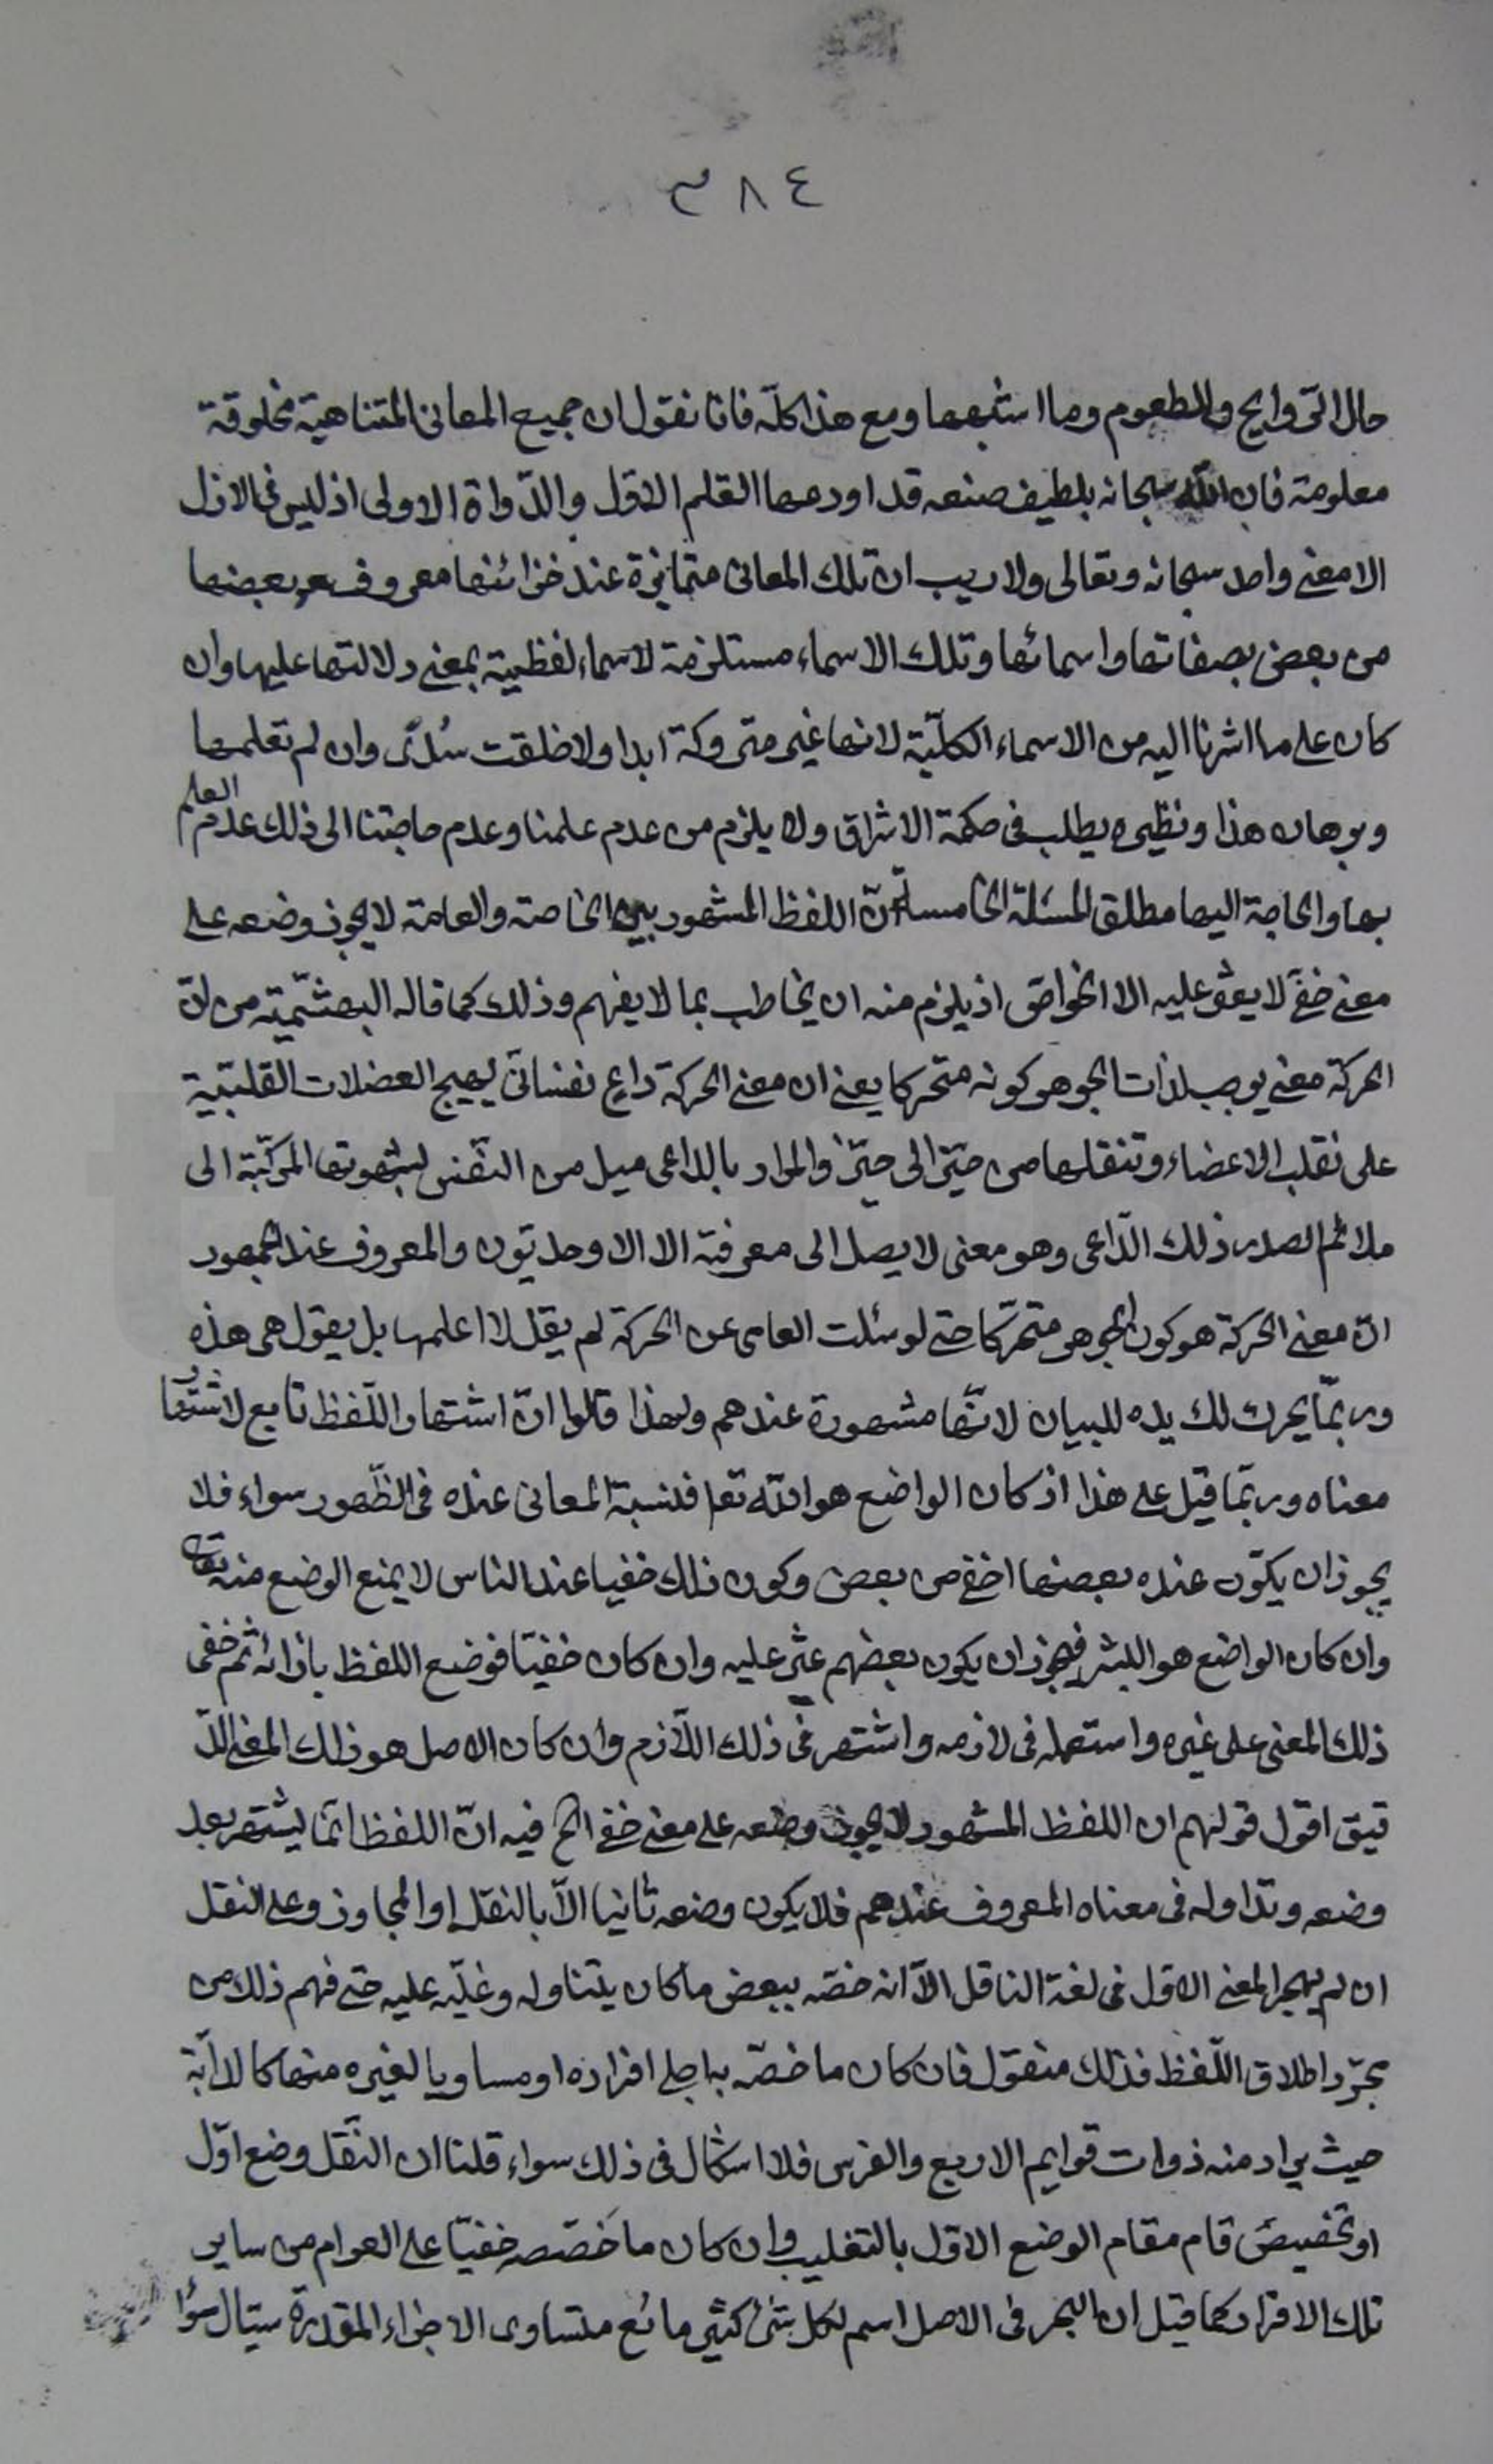 ٣٨٤
حال الروايح والطعوم وما اشبهها ومع هذا كلّه فانا نقول ان جميع المعانى المتناهية مخلوقة
معلومة فان اللّه سبحانه بلطيف صنعه قد اودعها القلم الاوّل والدّواة الاولى اذ ليس فى الازل
الا معنى واحد سبحانه وتعالى ولا ريب ان تلك المعانى متمايزة عند خزائنها معروف بعضها
من بعض بصفاتها واسمائها وتلك الاسماء مستلزمة لاسماء لفظية بمعنى دلالتها عليها وان
كان على ما اشرنا اليه من الاسماء الكلّية لانها غير متروكة ابدا ولا خلقت سُدًى وان لم تعلمها
وبرهان هذا ونظيره يطلب فى حكمة الاشراق ولا يلزم من عدم علمنا وعدم حاجتنا الى ذلك عدم العلم
بها والحاجة اليها مطلق المسئلة الخامسة انّ اللفظ المشهور بين الخاصة والعامة لا يجوز وضعه على
معنى خفىّ لا يعثر عليه الا الخواصّ اذ يلزم منه ان يخاطب بما لا يفهم وذلك كما قاله البهشميّة من انّ
الحركة معنى يوجب لذات الجوهر كونه متحركا يعنى ان معنى الحركة داعٍ نفسانىّ يهيج العضلات القلبيّة
على تقلب الاعضاء وتنقلها من حيّز الى حيّز والمراد بالداعى ميل من النّفس لشهوتها المركّبة الى
ملائم لصدر ذلك الدّاعى وهو معنى لا يصل الى معرفته الا الاوحديّون والمعروف عند الجمهور
انّ معنى الحركة هو كون الجوهر متحرّكا حتى لو سئلت العامى عن الحركة لم يقل لا اعلمها بل يقول هى هذه
وربّما يحرك لك يده للبيان لانّها مشهورة عندهم ولهذا قالوا انّ اشتهار اللّفظ تابع لاشتهار
معناه وربّما قيل على هذا اذ كان الواضع هو اللّه تعا فنسبة المعانى عنده فى الظّهور سواء فلا
يجوز ان يكون عنده بعضها اخفى من بعض وكون ذلك خفيا عند الناس لا يمنع الوضع منه تعالى
وان كان الواضع هو البشر فيجوز ان يكون بعضهم عثر عليه وان كان خفيّا فوضع اللفظ بازائه ثم خفى
ذلك المعنى على غيره واستعمله فى لازمه واشتهر فى ذلك اللّازم وان كان الاصل هو ذلك المعنى الدّ
قيق اقول قولهم ان اللفظ المشهور لا يجوز وضعه على معنى خفى الخ فيه انّ اللفظ انّما يشتهر بعد
وضعه وتداوله فى معناه المعروف عندهم فلا يكون وضعه ثانيا الاّ بالنقل او المجاز وعلى النقل
ان لم يهجر المعنى الاوّل فى لغة الناقل الاّ انه خصّه ببعض ما كان يتناوله وغلّبه عليه حتى فهم ذلك من
مجرّد اطلاق اللّفظ فذلك منقول فان كان ما خصّه به اجلى افراده او مساويا لغيره منها كالدابّة
حيث يراد منه ذوات قوايم الاربع والفرس فلا اشكال فى ذلك سواء قلنا ان النّقل وضع اوّل
او تخصيصٌ قام مقام الوضع الاوّل بالتغليب وان كان ما خَصّصه خفيّا على العوام من ساير
تلك الافراد كما قيل ان البحر فى الاصل اسم لكل شئ كثير مائع متساوى الاجزاء المقدرة سيّال سواء